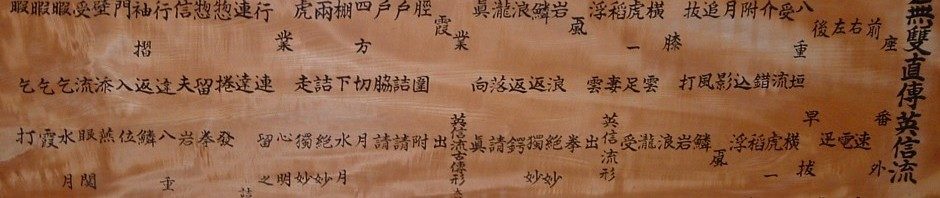 無雙直傳英信流
座
番外
前
速
右
電
左
迅
後
早抜
八重垣
横
受流
虎一
介錯
稲
附込
浮
月影
颪
追風
鱗
抜打
岩
膝
浪
横雲
瀧
虎一足
受
稲妻
英信流形
浮雲
出
颪
拳
岩浪
絶妙
鱗返
獨妙
浪返
鍔
瀧落
請
眞向
眞
業
英信流古傳形
霞
出
脛圍
附
戸詰
請
戸脇
請
四方切
月
棚下
水月
兩詰
絶妙
虎走
獨妙
業
心明
行連
留之
連達
惣捲
發
惣留
拳
信夫
岩
行違
八重
袖摺返
鱗
門入
位
壁添
燕
受流
眼関
暇乞
水月
暇乞
霞
暇乞
打